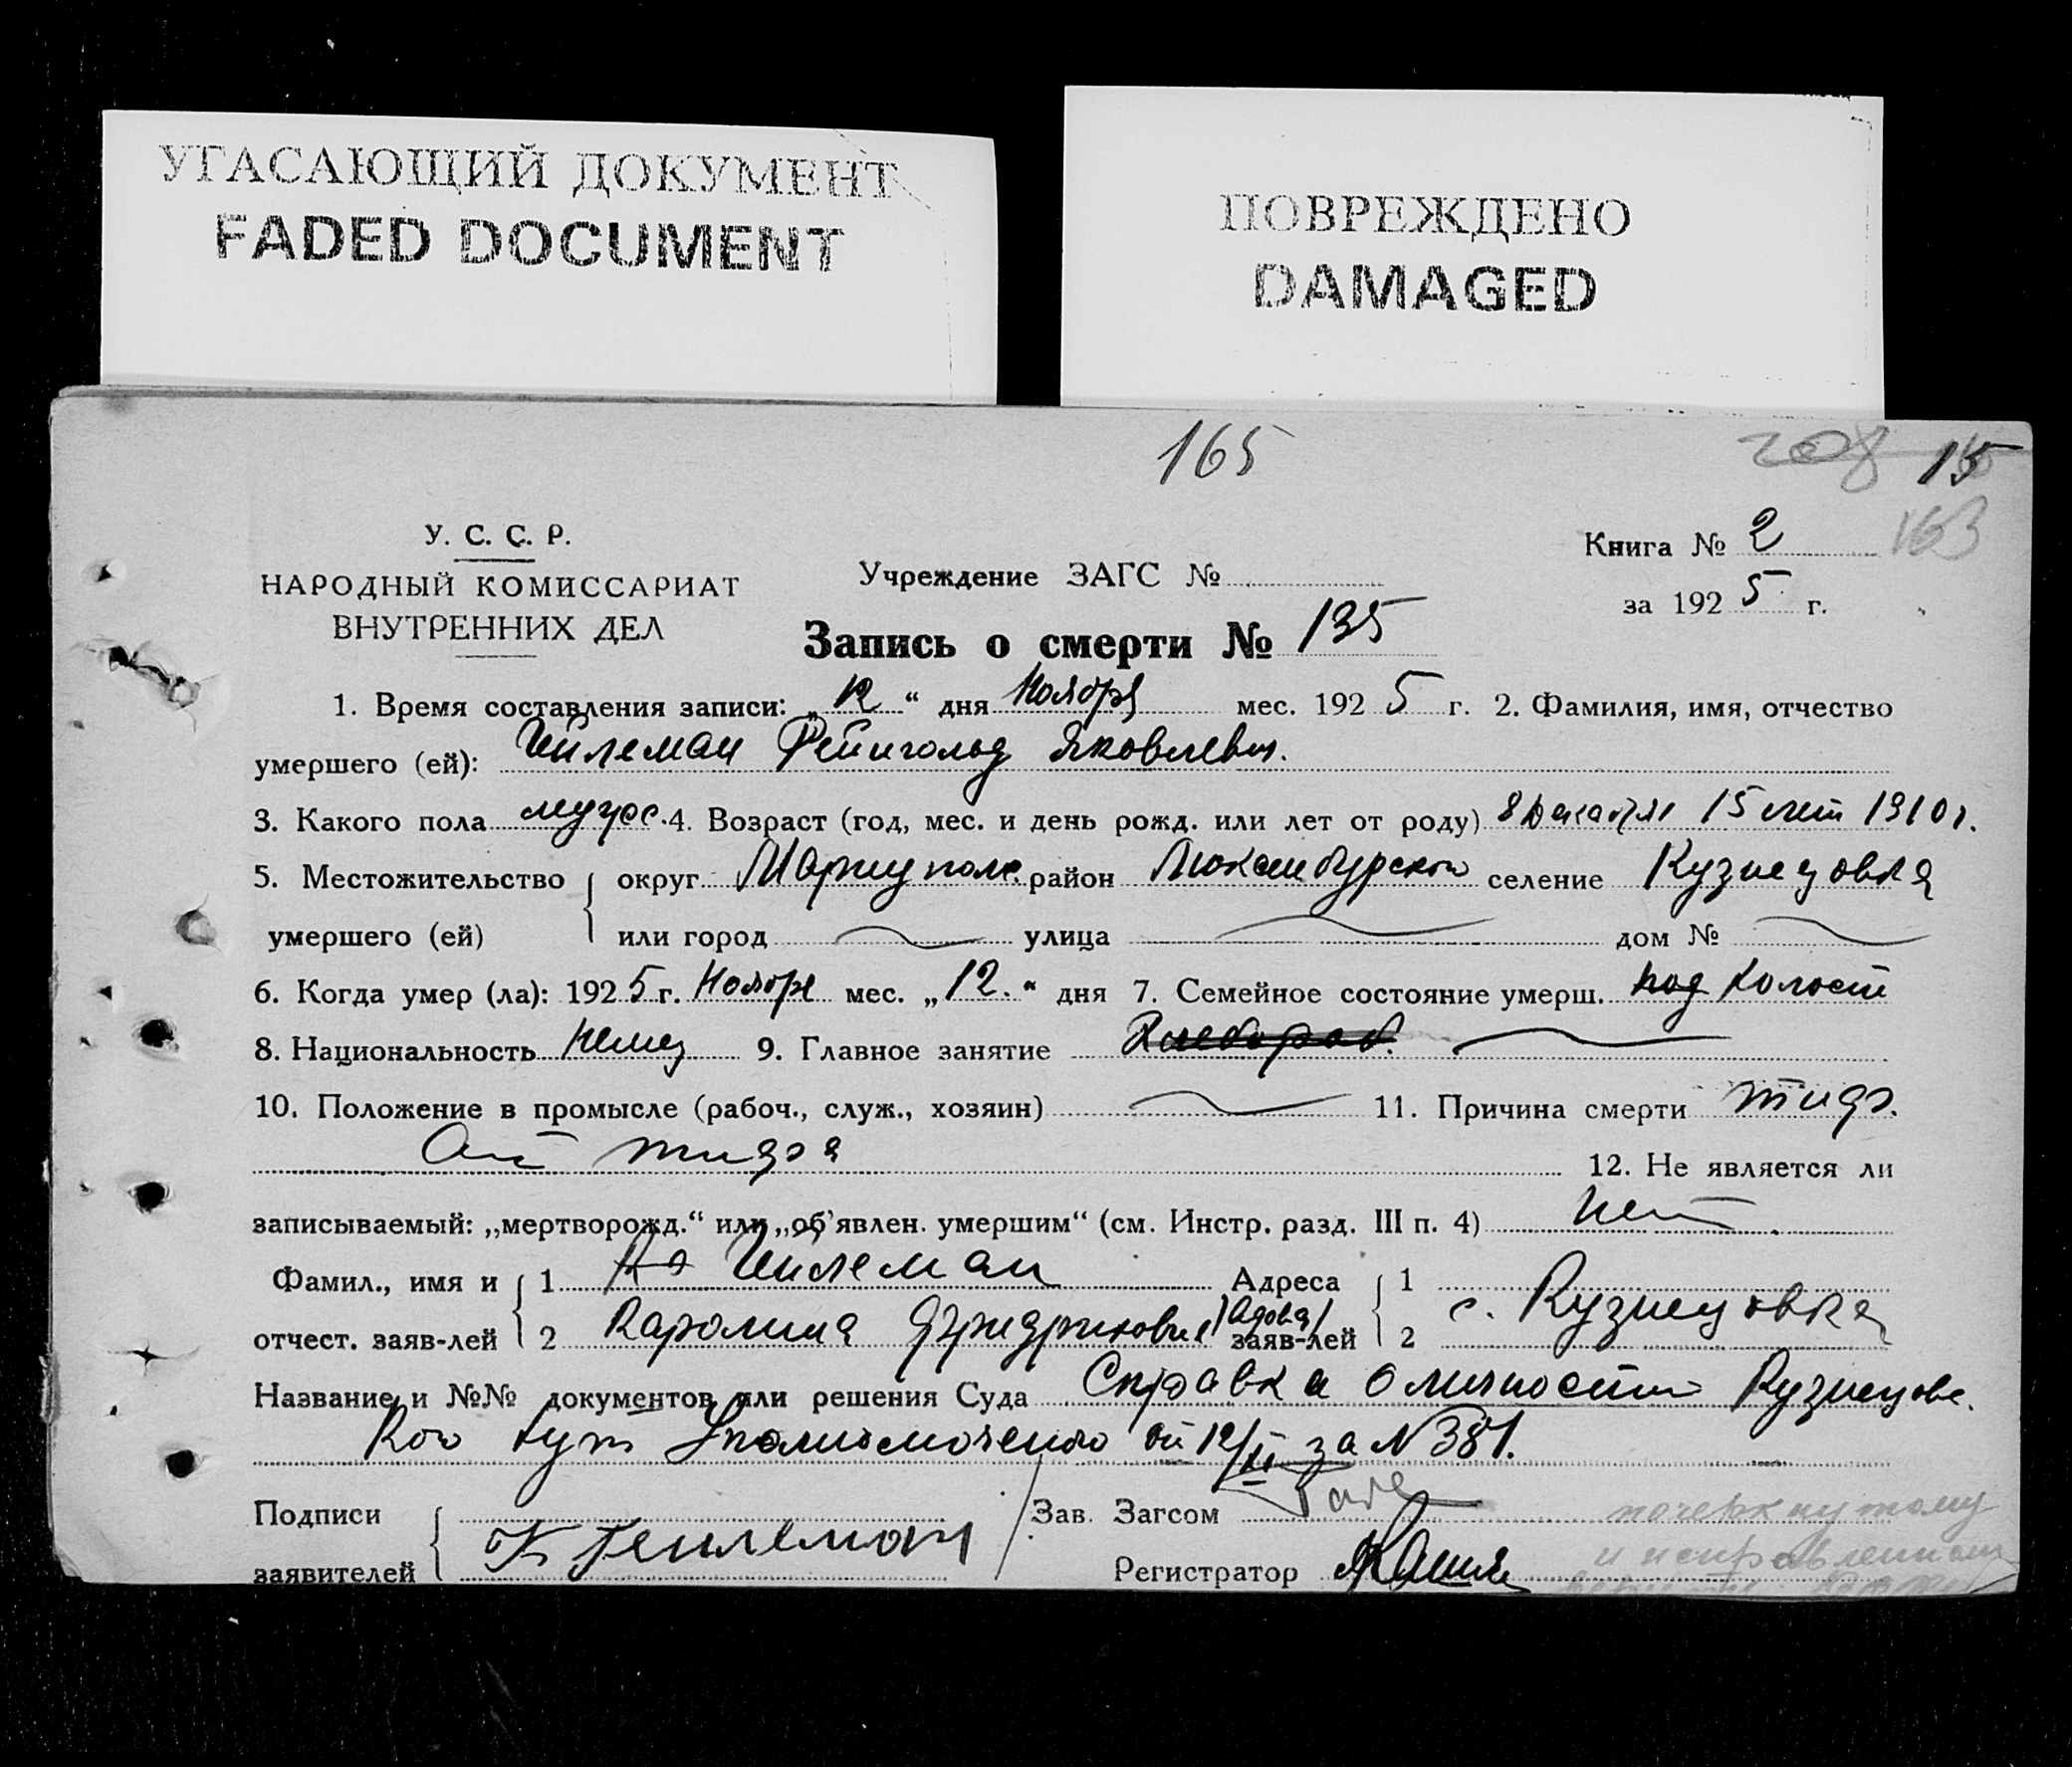 УГАСАЮЩИЙ ДОКУМЕНТ
FADED DOCUMENT
ПОВРЕЖДЕНО
DAMAGED
165
208 15
163
У. С. С. Р.
НАРОДНЫЙ КОМИССАРИАТ
ВНУТРЕННИХ ДЕЛ
Учреждение ЗАГС №
Книга № 2
за 1925 г.
Запись о смерти № 135
1. Время составления записи: „12“ дня Ноября мес. 1925 г. 2. Фамилия, имя, отчество
умершего (ей): Гейлеман Рейнгольд Яковлевич.
3. Какого пола мужс. 4. Возраст (год, мес. и день рожд. или лет от роду) 8 Декабря 15 лет 1910 г.
5. Местожительство округ Мариупол. район Люксембургский селение Кузнецовка
умершего (ей) или город улица дом №
6. Когда умер (ла): 1925 г. Ноября мес. „12.“ дня 7. Семейное состояние умерш. холост
8. Национальность Немец 9. Главное занятие Хлебороб.
10. Положение в промысле (рабоч., служ., хозяин) 11. Причина смерти тиф.
От тифа
12. Не является ли
записываемый: „мертворожд.“ или „об’явлен. умершим“ (см. Инстр. разд. III п. 4) Нет
Фамил., имя и 1 Гейлеман Адреса 1
отчест. заяв-лей 2 Каролина Фридриховна /вдова/ заяв-лей 2 с. Кузнецовка
Название и №№ документов или решения Суда Справка о личности Кузнецовс.
Кого Уполномоченого от 12/XI за N 381.
Подписи
заявителей К Гейлеман
Зав. Загсом
Регистратор